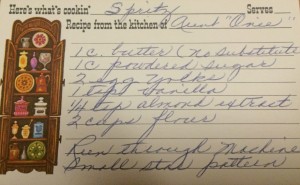 Here's what's cookin' Spritz Serves
Recipe from the kitchen of Aunt "Onie"
1 C butter (no substitute
1 C powdered sugar
2 egg yolks
1 tsp vanilla
1/4 tsp almond extract
2 cups flour
Run through machine
Small star pattern